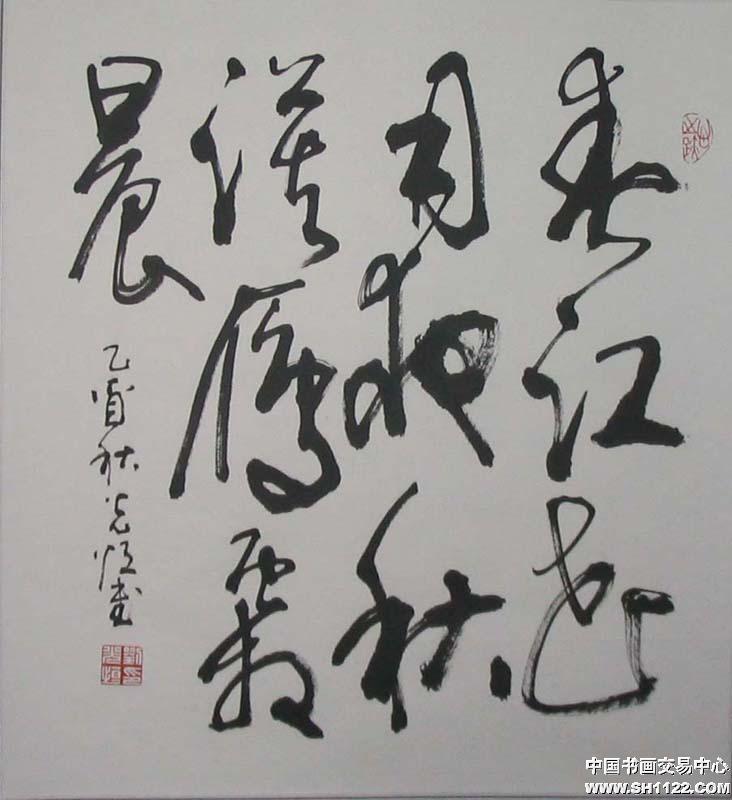 春江花
月夜秋
雁霜
晨
乙酉秋光恒書
中国书画交易中心
www.SH1122.com